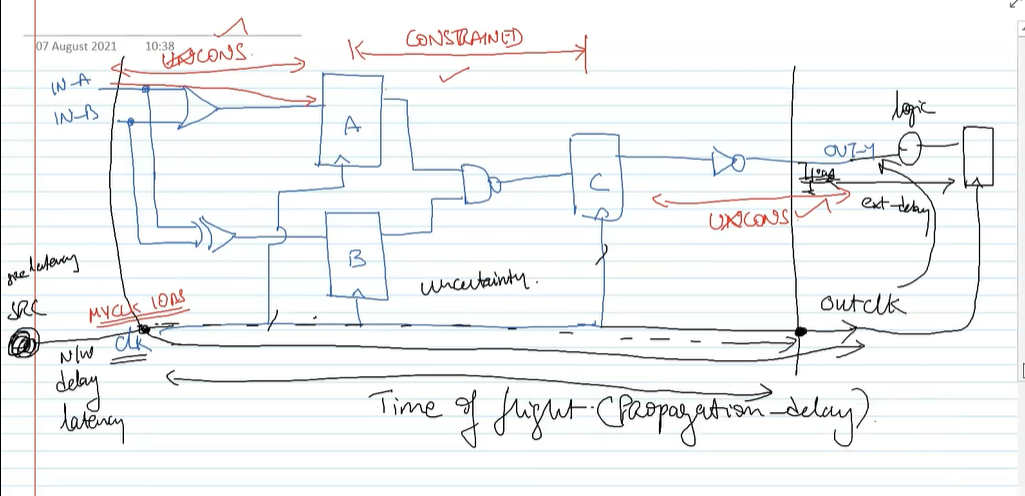 07 August 2021 10:38
UNCONS.
CONSTRAINED
IN-A
IN-B
A
B
C
logic
OUT-Y
ext-delay
UNCONS
uncertainty.
src latency
SRC
MYCLK 10ns
clk
N/W
delay
latency
outclk
Time of flight (Propagation-delay)